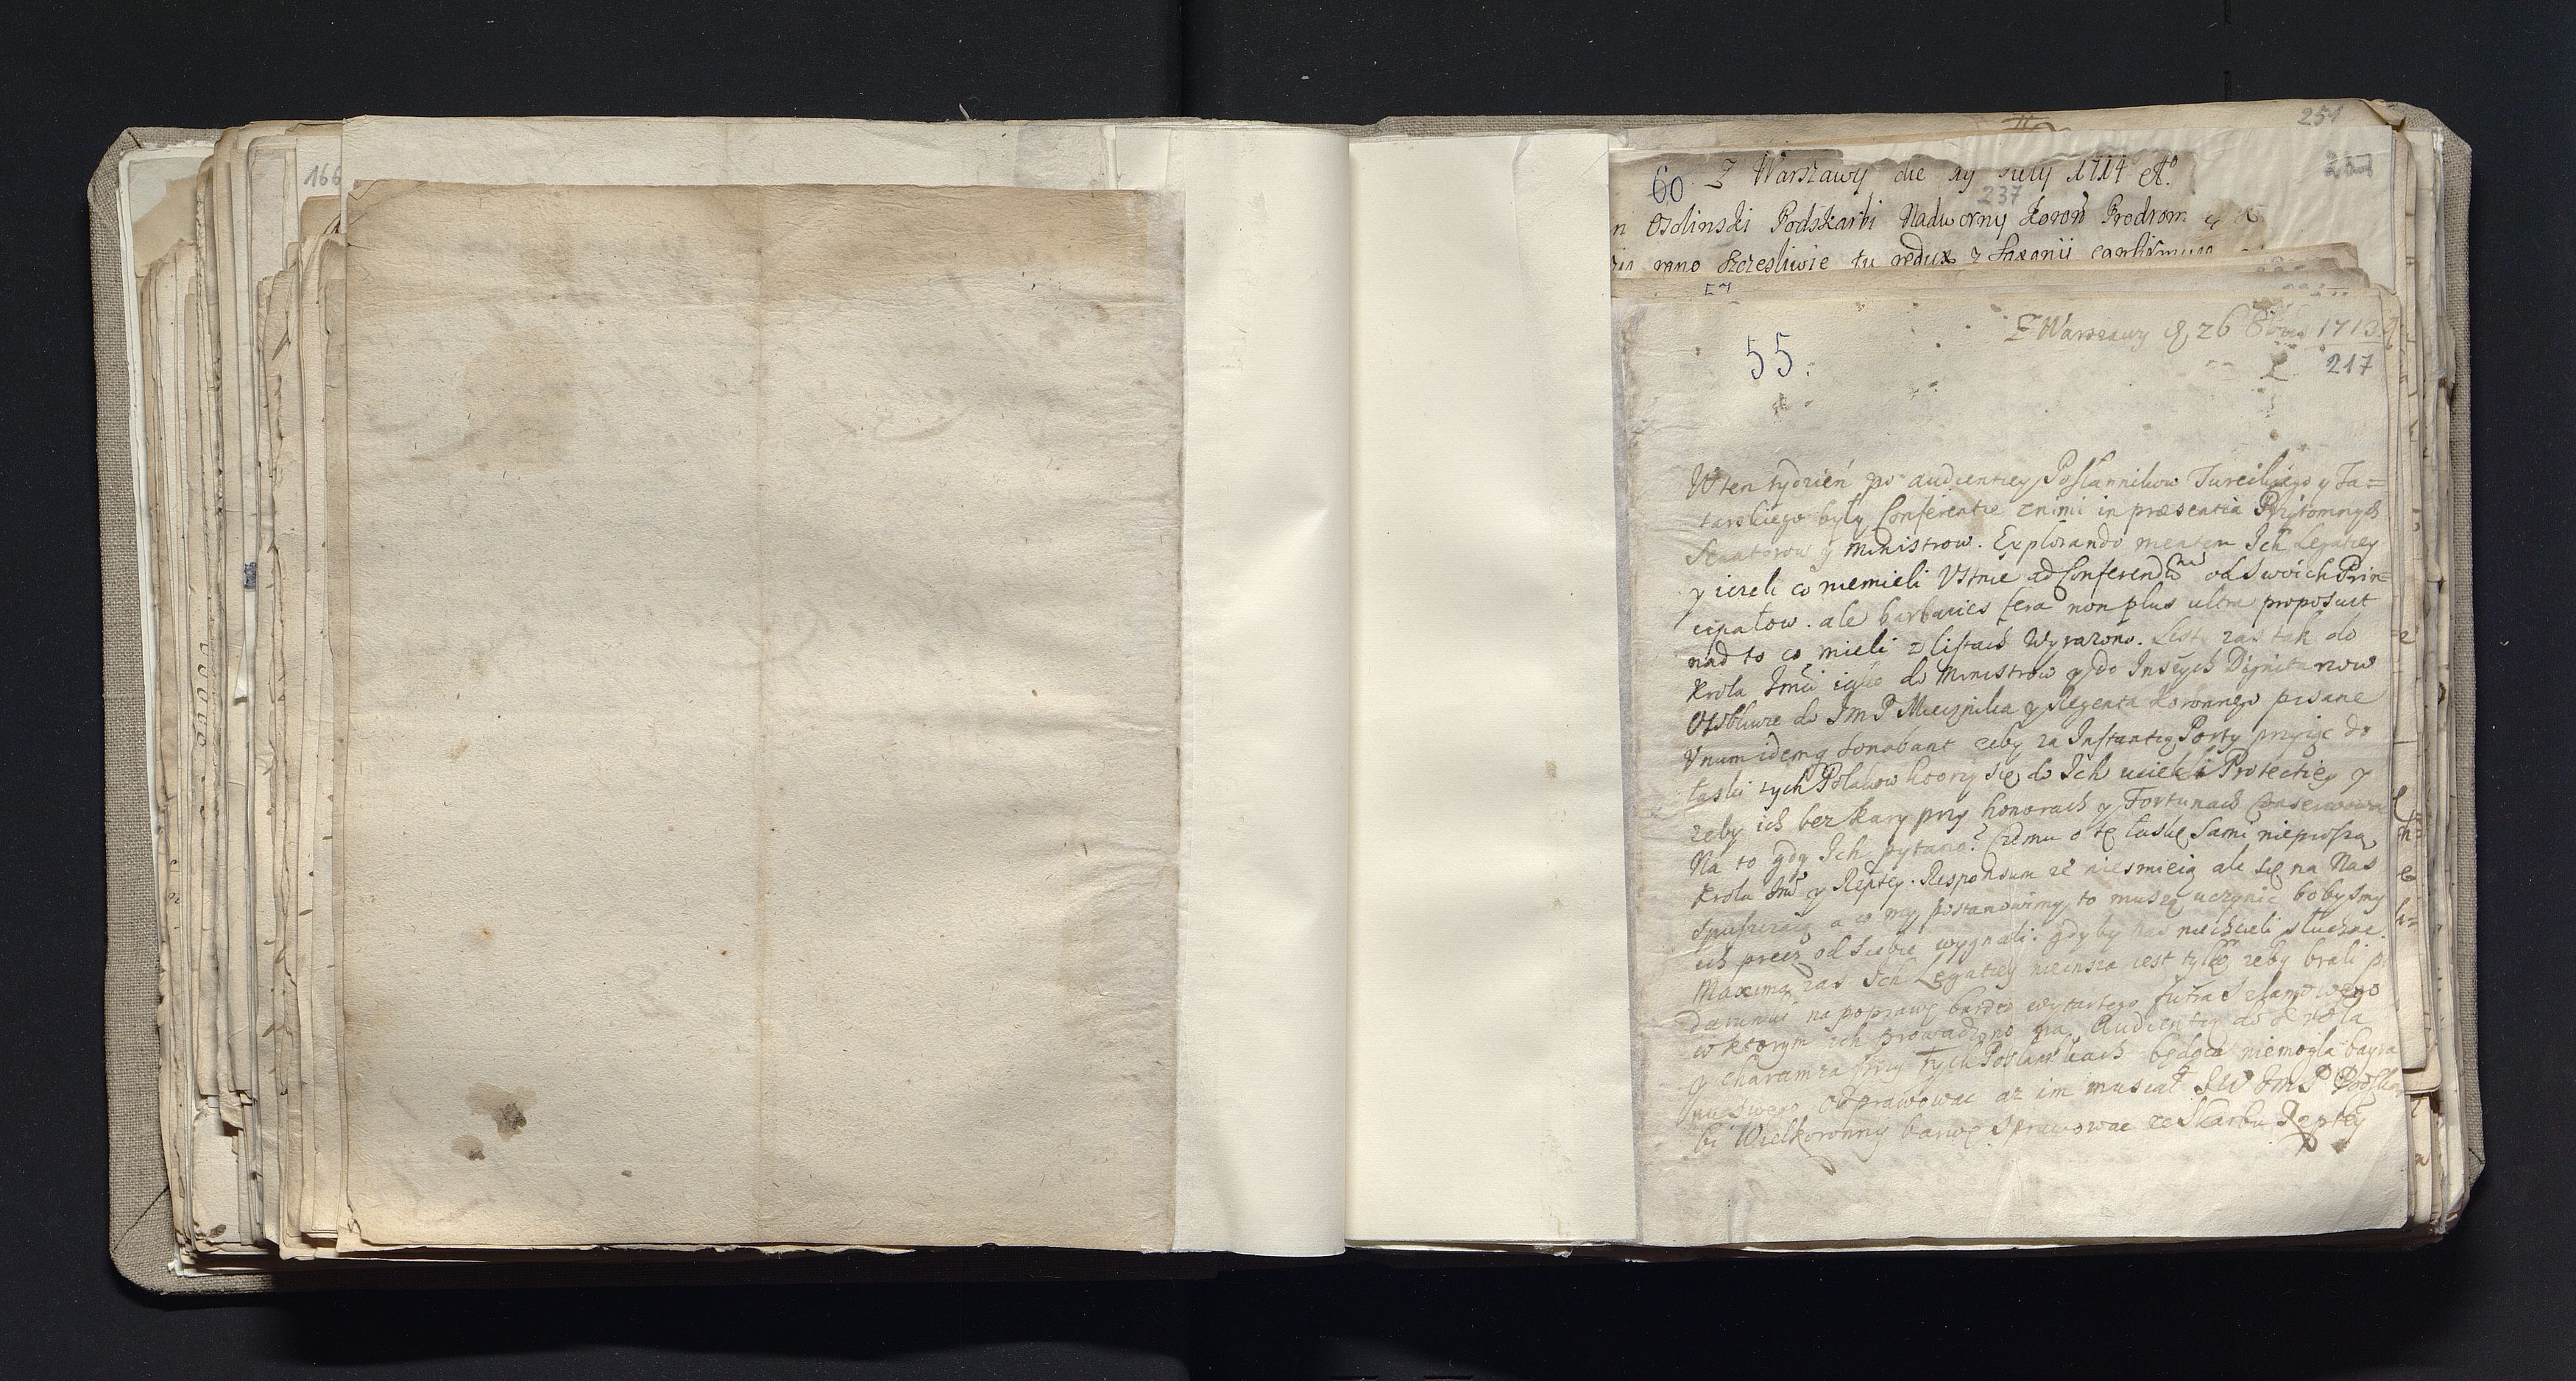 166
251
237
60 Z Warszawy die 19 July 1714 Ao
237
n Osolinski Podskarbi Nadworny Koron Prodrom
rano Szczesliwie tu redux z Saxonii
57
Z Warszawy d 26 8bris 1713
55.
217
W ten tydzień po audientiey Posłannikow Tureckiego y Ta=
tarskiego były Conferentie z nimi in præsentia Przytomnych
Senatorow y Ministrow. Explorando mentem Ich Legatiey
y iezeli co niemieli Ustnie ad Conferend od Swoich Prin=
cipałow. ale barbaries fera non plus ultra proposuit
nad to co mieli z listach Wyrazono. Listy zas tak do
Krola Jmci iako do Ministrow y do Inszych Dignitarzow
Osobliwie do Jm P Miecznika y Regenta Koronnego pisane
Unum idemq sonabant zeby za Instantią Porty przyiąc do
łaski tych Polakow ktorzy się do Ich uciekli Protectiey y
zeby ich bez kary przy honorach y Fortunach
Na to gdy Ich pytano? Czemu o tę łaskę Sami nieproszą
Krola Jmci y Rzptey. Responsum ze niesmieią ale się na Nas
Spuszczaią a co my postanowimy to muszą uczynic bobysmy
ich precz od Siebie wygnali. gdyby nas niechcieli słuchac.
Maxima zas Ich Legatiey nieinsza iest tylko zeby brali
na poprawę bardzo wytartego futra
w ktorym ich prowadzono na Audientią do Krola
y charamza przy tych Posłannikach będąca niemogła bayra
mu Swego Odprawowac az im musiał JW Jm P Podskar
bi Wielkoronny barwę Sprawowac ze Skarbu Rzptey